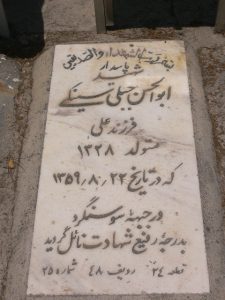 شهید
پاسدار
ابوالحسن جبلی تسینکی
فرزند علی
متولد ۱۳۲۸
که در تاریخ ۱۳۵۹٫۸٫۲۴
در جبهه سوسنگرد
بدرجه رفیع شهادت نائل گردید
قطعه ۲۴ ردیف ۴۸ شماره ۲۵